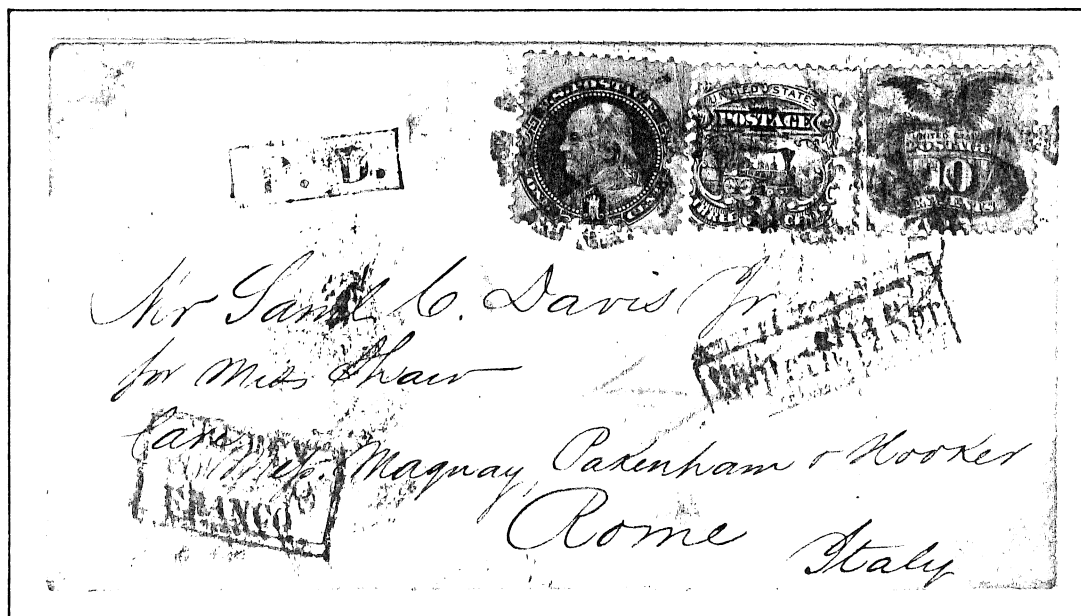 U.S. POSTAGE
ONE CENT
UNITED STATES
POSTAGE
THREE CENTS
3
UNITED STATES
POSTAGE
10
TEN CENTS
P. D.
Mr Saml C. Davis Jr
for Miss Shaw
Care Mess. Maquay, Pakenham & Hooker
FRANCO
Rome
Italy